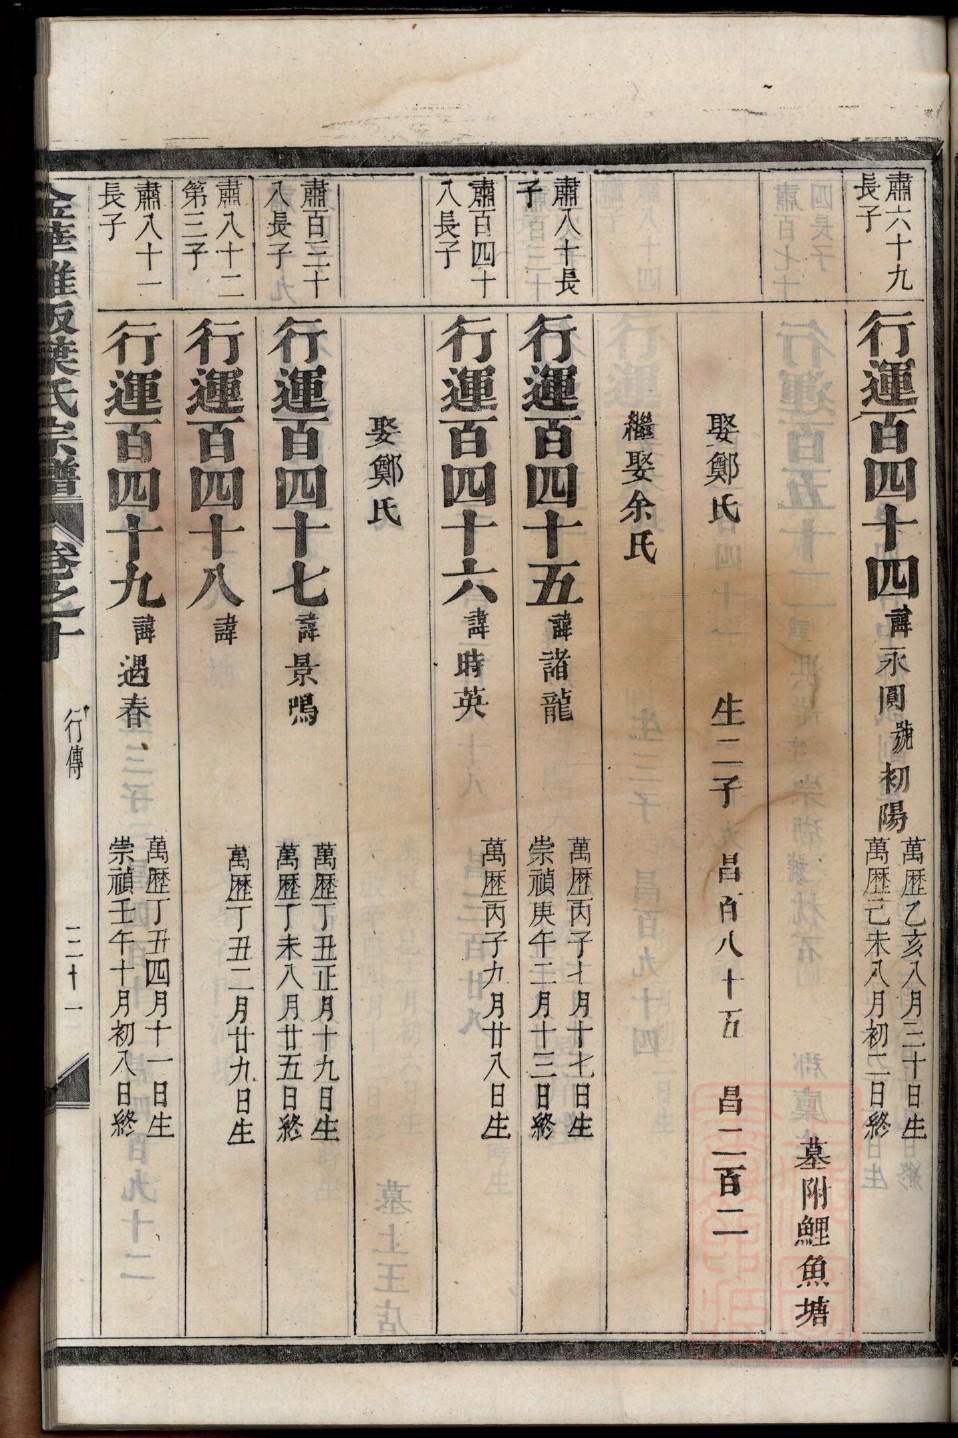 肅六十九
長子
行運百四十四 諱永圓號初陽
萬歷乙亥八月三十日生
萬歷己未八月初二日終
墓附鯉魚塘
娶鄭氏 生二子 昌百八十五 昌二百二
繼娶余氏
肅八十長
子
行運百四十五 諱諸龍
萬歷丙子七月十七日生
崇禎庚午二月十三日終
肅百四十
八長子
行運百四十六 諱時英
萬歷丙子九月廿八日生
娶鄭氏
肅百三十
八長子
行運百四十七 諱景鳴
萬歷丁丑正月十九日生
萬歷丁未八月廿五日終
肅八十二
第三子
行運百四十八 諱
萬歷丁丑二月廿九日生
肅八十一
長子
行運百四十九 諱遇春
萬歷丁丑四月十一日生
崇禎壬午十月初八日終
金華雅畈葉氏宗譜 卷之十 行傳 三十一